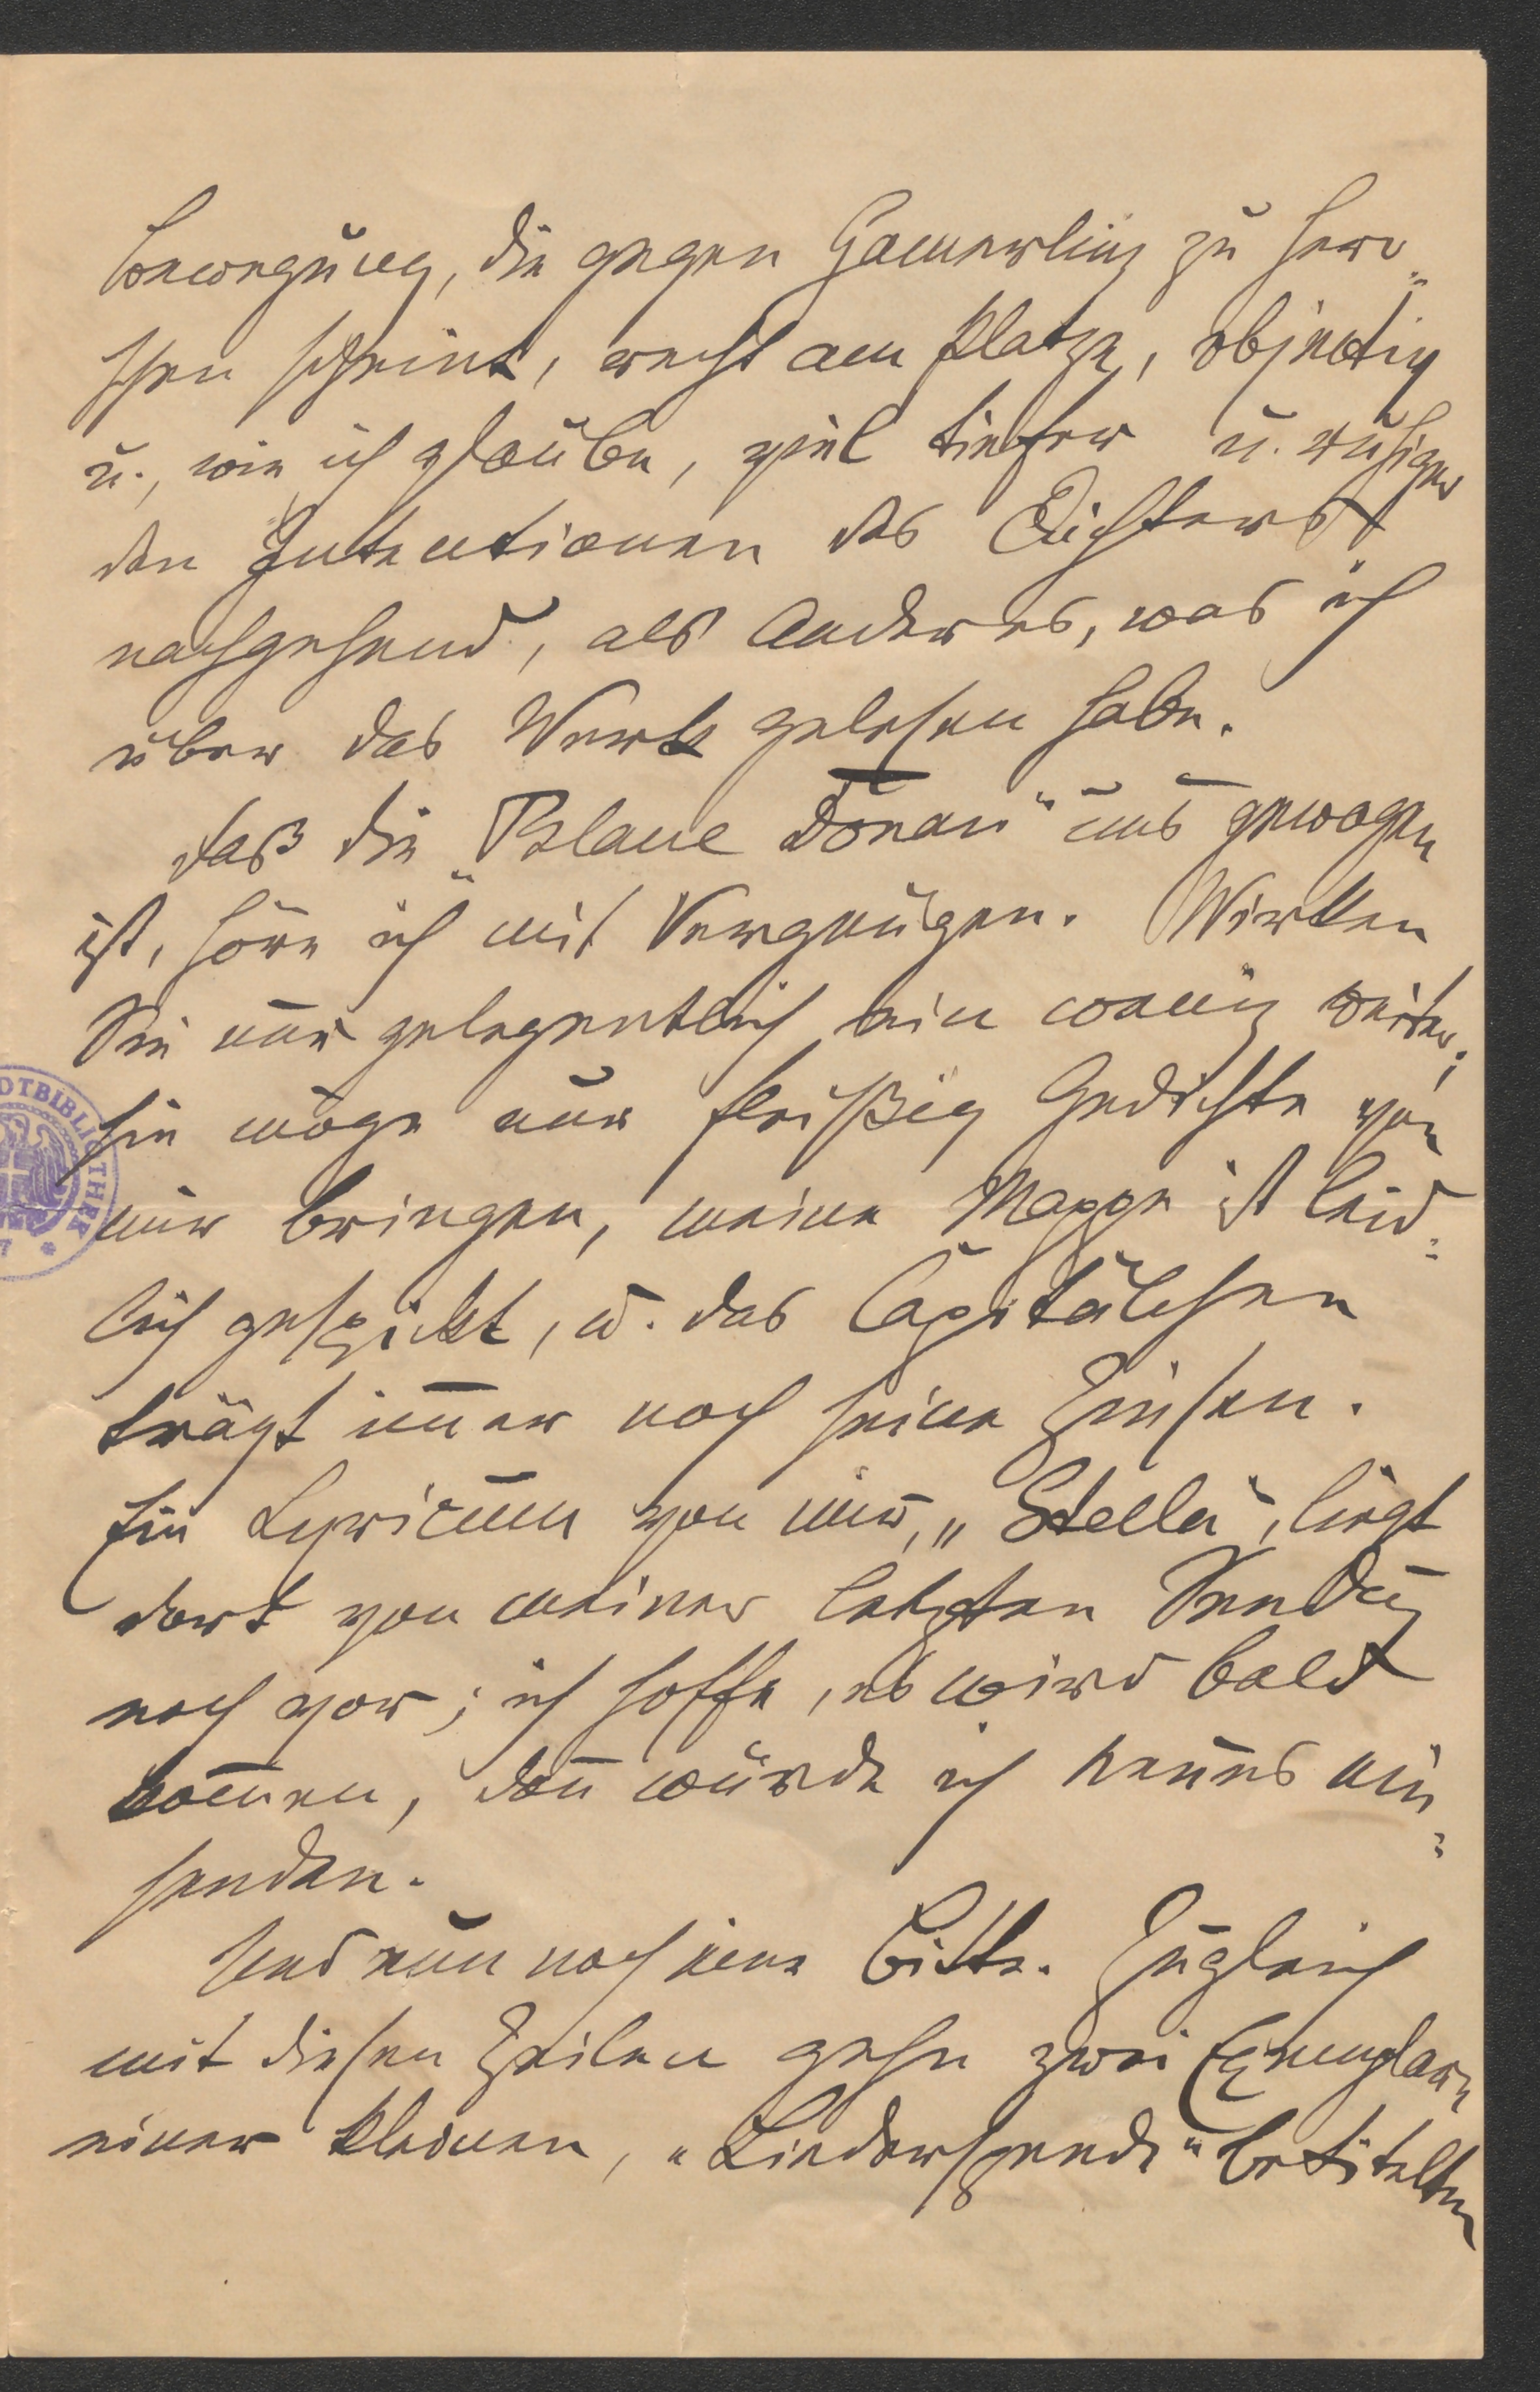 bewegung, die gegen Hamerling zu herr-
schen scheint, recht am Platze, objectiv
u., wie ich glaube, viel tiefer u. ruhiger
den Intentionen des Dichters
nachgehend, als Anderes, was ich
über das Werk gelesen habe.
Daß die „Blaue Donau“ uns gewogen
ist, höre ich mit Vergnügen. Wirken
Sie nur gelegentlich ein wenig weiter;
sie möge nur fleißig Gedichte von
mir bringen, meine Mappe ist leid-
lich gespickt, u. das Capitälchen
trägt im̄er noch seine Zinsen.
Ein Lyricum von mir, „Stella“, liegt
dort von meiner letzten Sendung
noch vor; ich hoffe, es wird bald
kom̄en, dan̄ würde ich neues ein-
senden.
Und nun noch eine Bitte. Zugleich
mit diesen Zeilen gehn zwei Exemplare
einer kleinen, „Liederspende“ betitelten
DTBIBLIOTHEK
7 *